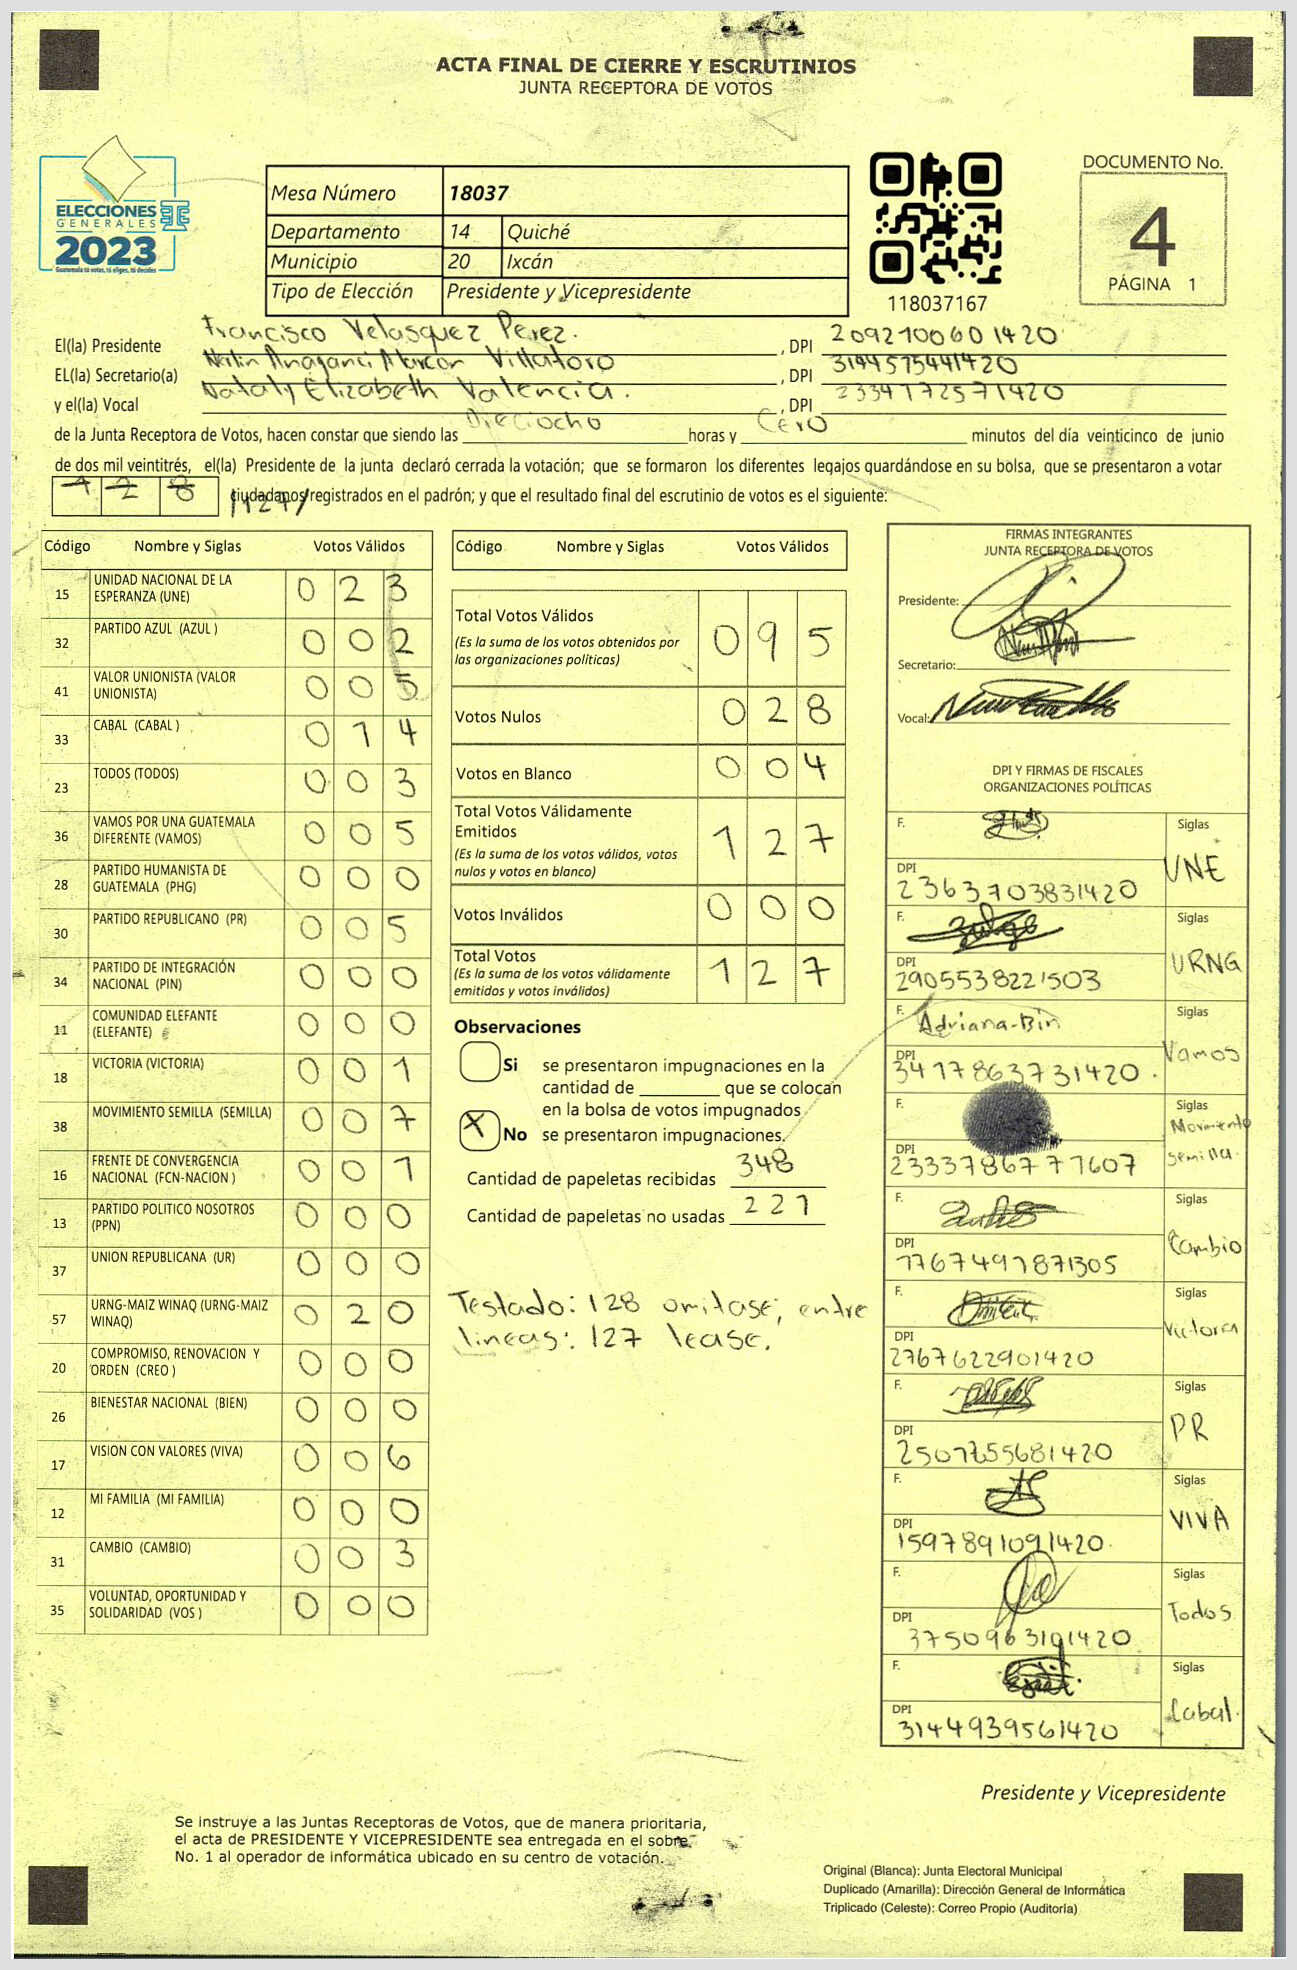 ACTA FINAL DE CIERRE Y ESCRUTINIOS
JUNTA RECEPTORA DE VOTOS
ELECCIONES
GENERALES
2023
Guatemala tú votas, tú eliges, tú decides
Mesa Número 18037
Departamento 14 Quiché
Municipio 20 Ixcán
Tipo de Elección Presidente y Vicepresidente
118037167
DOCUMENTO No.
4
PÁGINA 1
El(la) Presidente Francisco Velasquez Perez. , DPI 2092100601420
EL(la) Secretario(a) Villatoro , DPI 3194575441420
y el(la) Vocal Nataly Elizabeth Valencia. , DPI 2334172571420
de la Junta Receptora de Votos, hacen constar que siendo las Dieciocho horas y Cero minutos del día veinticinco de junio
de dos mil veintitrés, el(la) Presidente de la junta declaró cerrada la votación; que se formaron los diferentes legajos quardándose en su bolsa, que se presentaron a votar
1 2 8 /127/ ciudadanos registrados en el padrón; y que el resultado final del escrutinio de votos es el siguiente:
Código Nombre y Siglas Votos Válidos
15 UNIDAD NACIONAL DE LA ESPERANZA (UNE) 0 2 3
32 PARTIDO AZUL (AZUL ) 0 0 2
41 VALOR UNIONISTA (VALOR UNIONISTA) 0 0 5
33 CABAL (CABAL ) 0 1 4
23 TODOS (TODOS) 0 0 3
36 VAMOS POR UNA GUATEMALA DIFERENTE (VAMOS) 0 0 5
28 PARTIDO HUMANISTA DE GUATEMALA (PHG) 0 0 0
30 PARTIDO REPUBLICANO (PR) 0 0 5
34 PARTIDO DE INTEGRACIÓN NACIONAL (PIN) 0 0 0
11 COMUNIDAD ELEFANTE (ELEFANTE) 0 0 0
18 VICTORIA (VICTORIA) 0 0 1
38 MOVIMIENTO SEMILLA (SEMILLA) 0 0 7
16 FRENTE DE CONVERGENCIA NACIONAL (FCN-NACION ) 0 0 1
13 PARTIDO POLITICO NOSOTROS (PPN) 0 0 0
37 UNION REPUBLICANA (UR) 0 0 0
57 URNG-MAIZ WINAQ (URNG-MAIZ WINAQ) 0 2 0
20 COMPROMISO, RENOVACION Y ORDEN (CREO ) 0 0 0
26 BIENESTAR NACIONAL (BIEN) 0 0 0
17 VISION CON VALORES (VIVA) 0 0 6
12 MI FAMILIA (MI FAMILIA) 0 0 0
31 CAMBIO (CAMBIO) 0 0 3
35 VOLUNTAD, OPORTUNIDAD Y SOLIDARIDAD (VOS ) 0 0 0
Código Nombre y Siglas Votos Válidos
Total Votos Válidos 0 9 5
(Es la suma de los votos obtenidos por
las organizaciones políticas)
Votos Nulos 0 2 8
Votos en Blanco 0 0 4
Total Votos Válidamente
Emitidos 1 2 7
(Es la suma de los votos válidos, votos
nulos y votos en blanco)
Votos Inválidos 0 0 0
Total Votos 1 2 7
(Es la suma de los votos válidamente
emitidos y votos inválidos)
Observaciones
Si se presentaron impugnaciones en la
cantidad de ________ que se colocan
en la bolsa de votos impugnados
X No se presentaron impugnaciones.
Cantidad de papeletas recibidas 348
Cantidad de papeletas no usadas 221
Testado: 128 omitase; entre
lineas: 127 lease.
FIRMAS INTEGRANTES
JUNTA RECEPTORA DE VOTOS
Presidente:
Secretario:
Vocal:
DPI Y FIRMAS DE FISCALES
ORGANIZACIONES POLÍTICAS
F. Siglas UNE
DPI 2363703831420
F. Siglas URNG
DPI 2905538221503
F. Adriana-Bin Siglas Vamos
DPI 3417863731420.
F. Siglas Movimiento Semilla.
DPI 2333786771607
F. Siglas Cambio
DPI 1767491871305
F. Siglas Victoria
DPI 2767622901420
F. Siglas PR
DPI
F. Siglas VIVA
DPI 1597891091420.
F. Siglas Todos
DPI 3750963191420
F. Siglas Cabal.
DPI 3144939561420
Presidente y Vicepresidente
Se instruye a las Juntas Receptoras de Votos, que de manera prioritaria,
el acta de PRESIDENTE Y VICEPRESIDENTE sea entregada en el sobre
No. 1 al operador de informática ubicado en su centro de votación.
Original (Blanca): Junta Electoral Municipal
Duplicado (Amarilla): Dirección General de Informática
Triplicado (Celeste): Correo Propio (Auditoría)